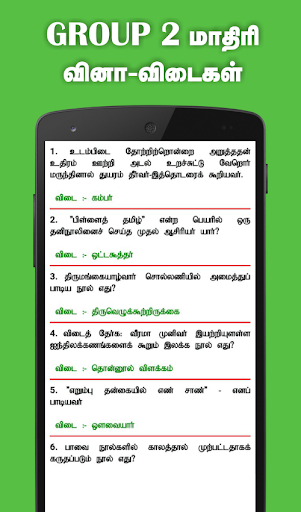 GROUP 2 மாதிரி
வினா-விடைகள்
1. உடம்பிடை தோற்றிற்றொன்றை அறுத்ததன்
உதிரம் ஊற்றி அடல் உறச்சுட்டு வேறொர்
மருந்தினால் துயரம் தீர்வர்-இத்தொடரைக் கூறியவர்.
விடை :- கம்பர்
2. "பிள்ளைத் தமிழ்" என்ற பெயரில் ஒரு
தனிநூலினைச் செய்த முதல் ஆசிரியர் யார்?
விடை :- ஒட்டகூத்தர்
3. திருமங்கையாழ்வார் சொல்லணியில் அமைத்துப்
பாடிய நூல் எது?
விடை :- திருவெழுக்கூற்றிருக்கை
4. விடைத் தேர்க: வீரமா முனிவர் இயற்றியுள்ளள
ஐந்திலக்கணங்களைக் கூறும் இலக்க நூல் எது?
விடை :- தொன்னூல் விளக்கம்
5. "எறும்பு தன்கையில் எண் சாண்" - எனப்
பாடியவர்
விடை :- ஔவையார்
6. பாவை நூல்களில் காலத்தால் முற்பட்டதாகக்
கருதப்படும் நூல் எது?